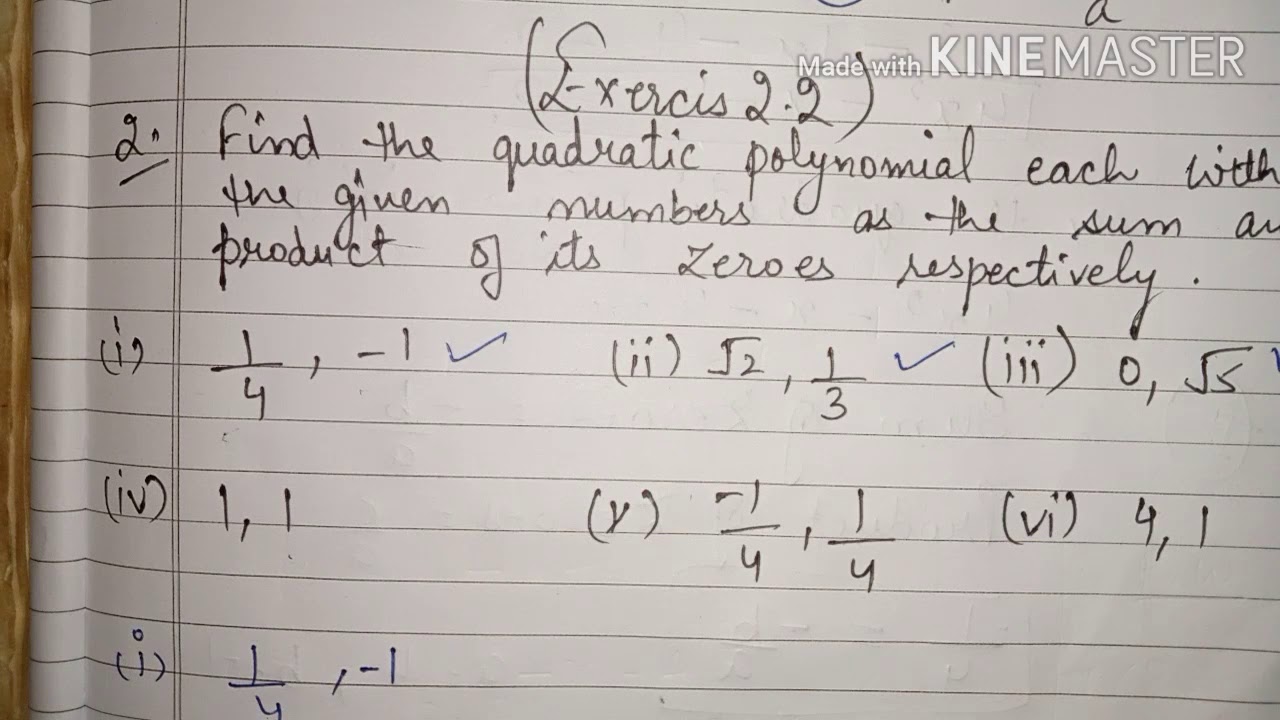 a
Made with KINEMASTER
(Exercis 2.2)
2. Find the quadratic polynomial each with
the given numbers as the sum an
product of its zeroes respectively.
(i) 1/4, -1 ✓ (ii) √2, 1/3 ✓ (iii) 0, √5
(iv) 1, 1 (v) -1/4, 1/4 (vi) 4, 1
(i) 1/4, -1